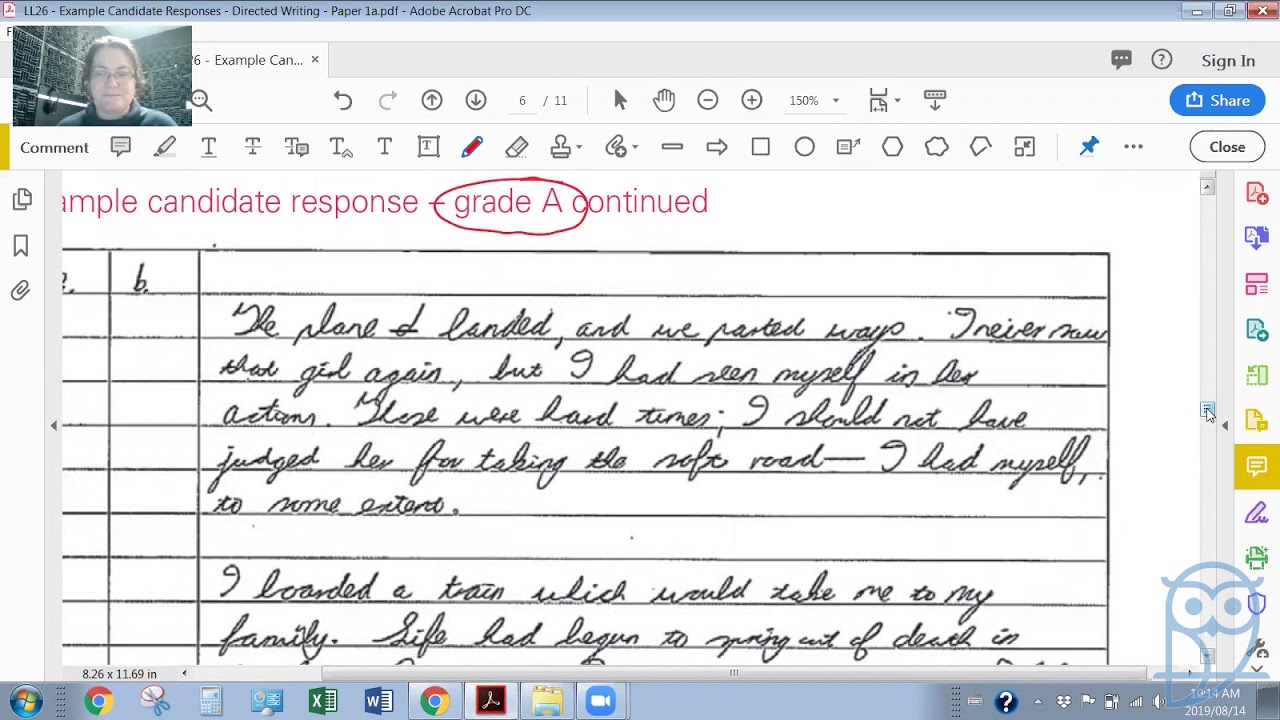 LL26 - Example Candidate Responses - Directed Writing - Paper 1a.pdf - Adobe Acrobat Pro DC
6 - Example Can... ×
Sign In
6 / 11
150%
Share
Comment
Close
ample candidate response – grade A continued
b.
The plane landed, and we parted ways. I never saw
that girl again, but I had seen myself in her
actions. Those were hard times; I should not have
judged her for taking the soft road— I had myself,
to some extent.
I boarded a train which would take me to my
family. Life had begun to spring out of death in
8.26 x 11.69 in
10:14 AM
2019/08/14